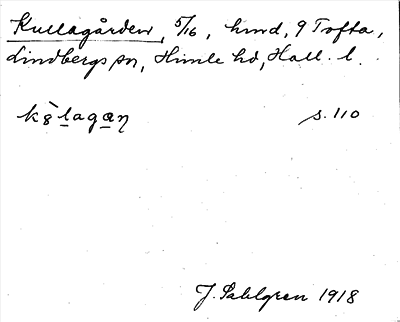 Kullagården, 5/16, hmd, 9 Tofta,
Lindbergs sn, Himle hd, Hall. l.
k8̀lagan s. 110
J. Sahlgren 1918